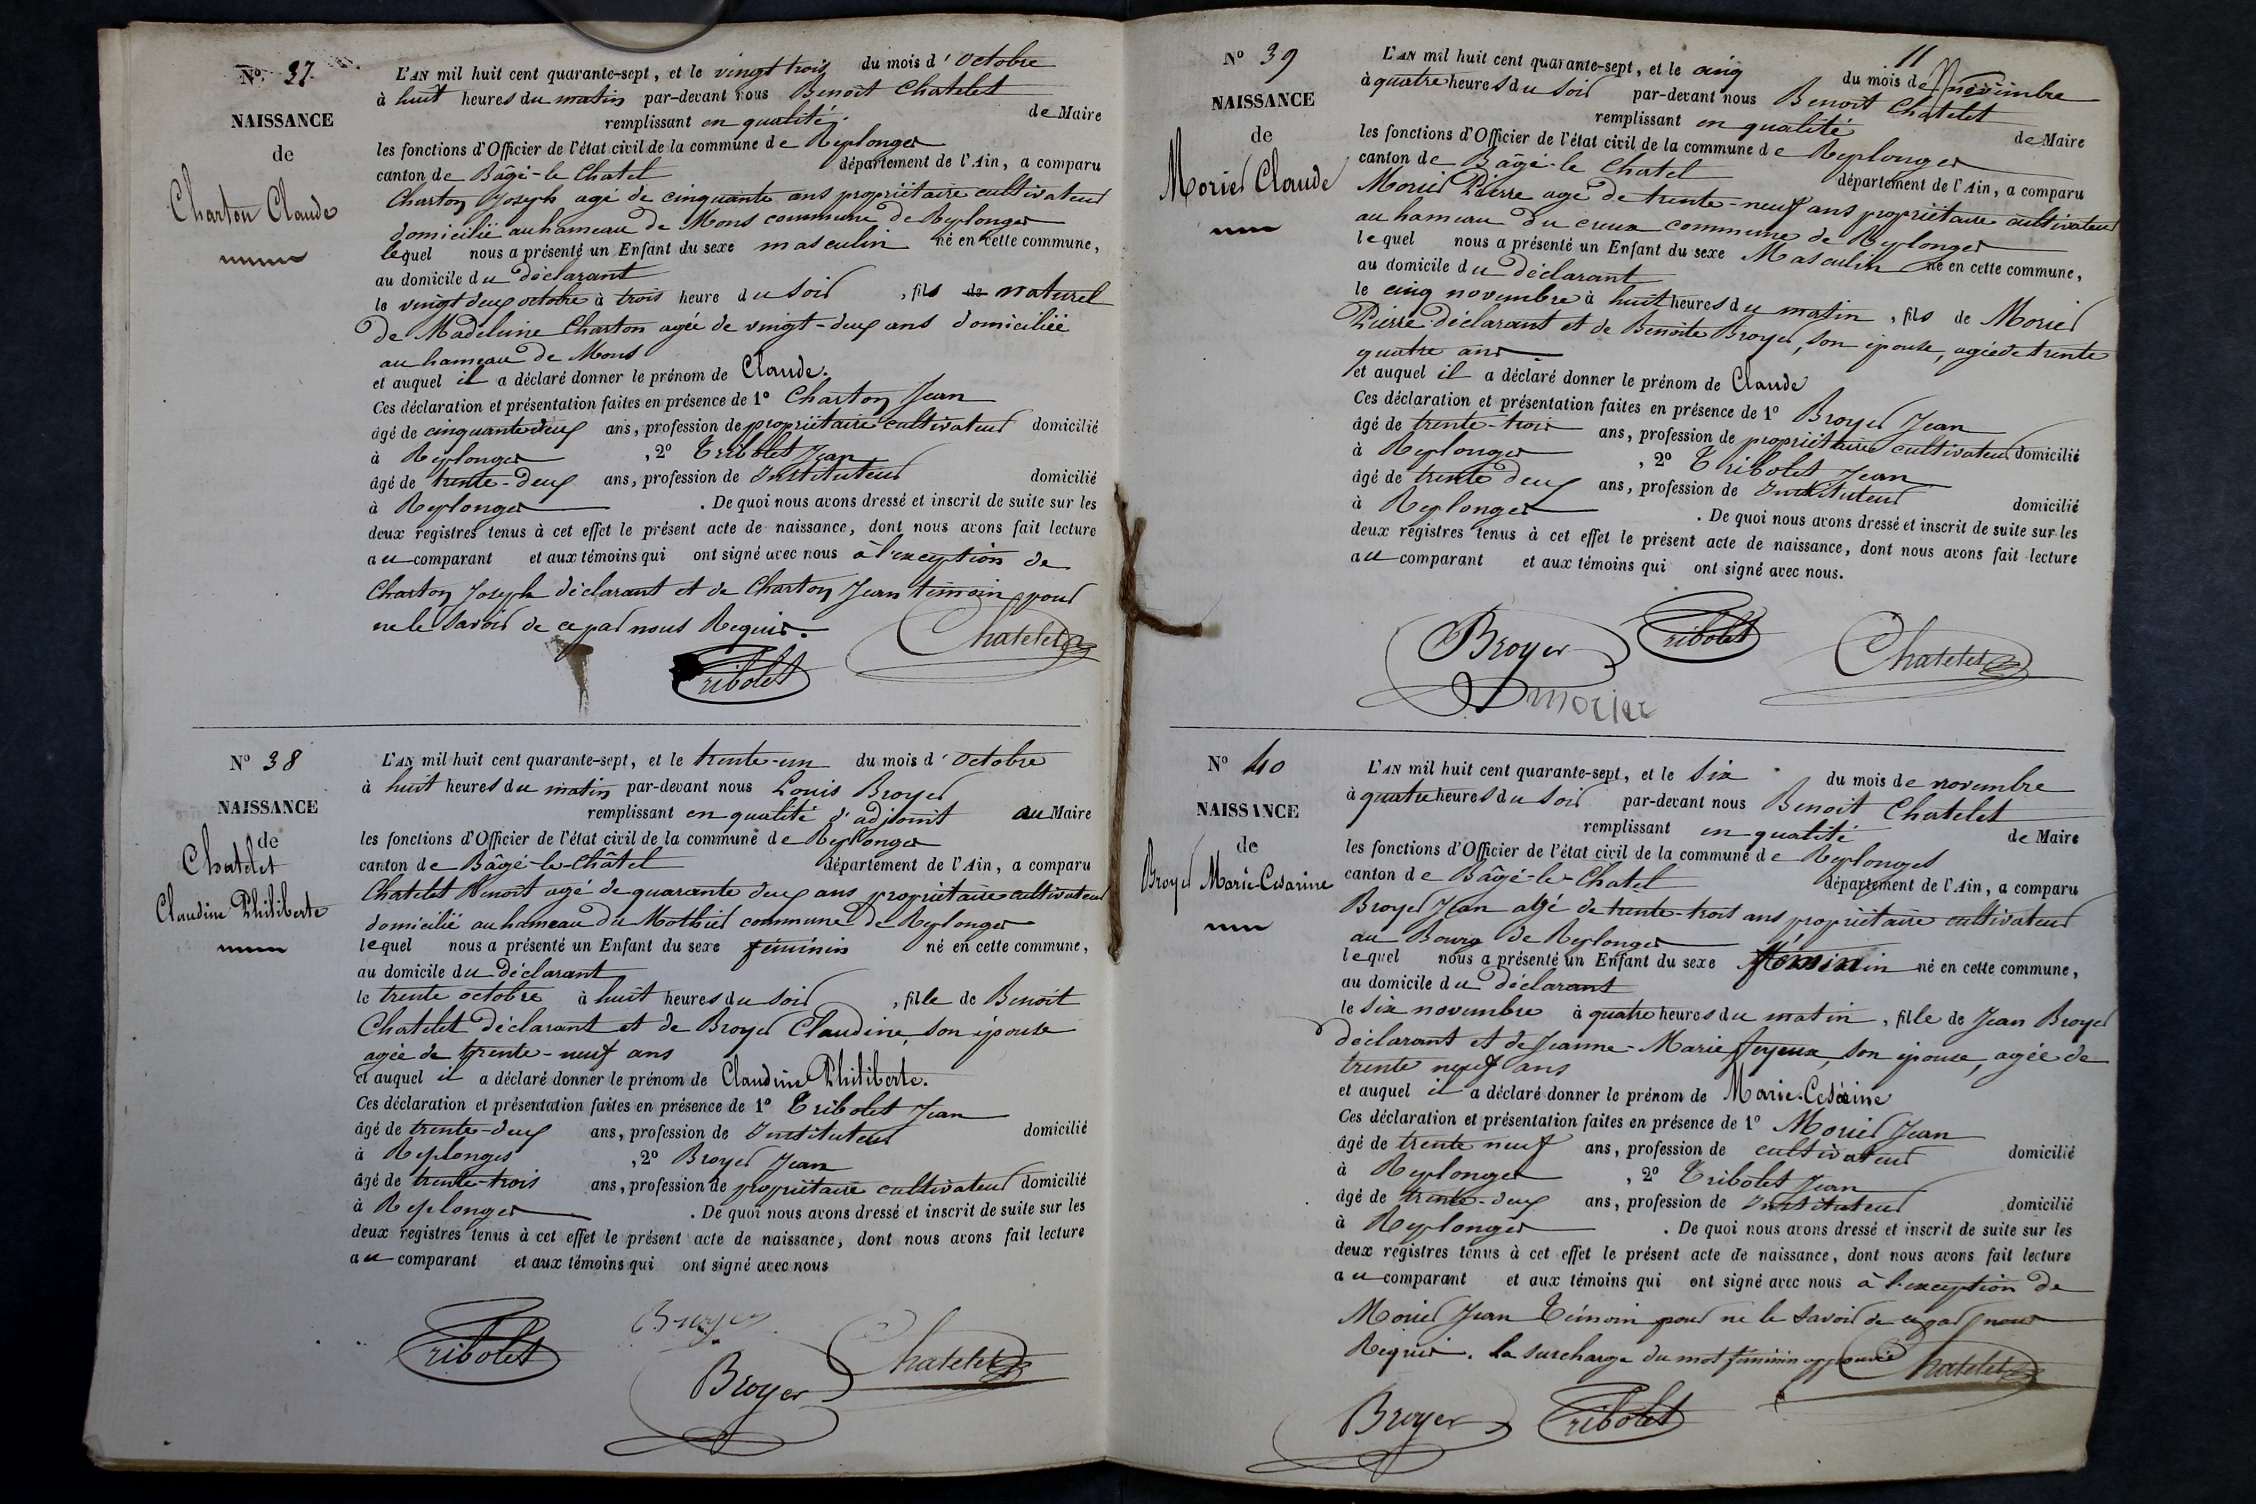 Nº 37.
NAISSANCE
de
Charton Claude
L'AN mil huit cent quarante-sept, et le vingt trois du mois d'octobre
à huit heures du matin par-devant nous Benoit Chatelet
remplissant en qualité de Maire
les fonctions d'Officier de l'état civil de la commune de Replonges
canton de Bâgé-le Chatel département de l'Ain, a comparu
Charton Joseph agé de cinquante ans propriétaire cultivateur
domicilié au hameau de Mons commune de Replonges
lequel nous a présenté un Enfant du sexe masculin né en cette commune,
au domicile du déclarant
le vingt deux octobre à trois heure du soir, fils de naturel
de Madeleine Charton agée de vingt-deux ans domiciliée
au hameau de Mons
et auquel il a déclaré donner le prénom de Claude.
Ces déclaration et présentation faites en présence de 1º Charton Jean
âgé de cinquante deux ans, profession de propriétaire cultivateur domicilié
à Replonges, 2º Tribolet Jean
âgé de trente-deux ans, profession de Instituteur domicilié
à Replonges. De quoi nous avons dressé et inscrit de suite sur les
deux registres tenus à cet effet le présent acte de naissance, dont nous avons fait lecture
au comparant et aux témoins qui ont signé avec nous à l'exception de
Charton Joseph déclarant et de Charton Jean témoin pour
ne le savoir de ce par nous Requis.
Chatelet
Tribolet
Nº 38
NAISSANCE
de
Chatelet
Claudine Philiberte
L'AN mil huit cent quarante-sept, et le trente-un du mois d'octobre
à huit heures du matin par-devant nous Louis Broyer
remplissant en qualité d'adjoint au Maire
les fonctions d'Officier de l'état civil de la commune de Replonges
canton de Bâgé-le-Châtel département de l'Ain, a comparu
Chatelet Benoit agé de quarante deux ans propriétaire cultivateur
domicilié au hameau du Mothier commune de Replonges
lequel nous a présenté un Enfant du sexe féminin né en cette commune,
au domicile du déclarant
le trente octobre à huit heures du soir, fille de Benoit
Chatelet déclarant et de Broyer Claudine, son épouse
agée de trente-neuf ans
et auquel il a déclaré donner le prénom de Claudine Philiberte.
Ces déclaration et présentation faites en présence de 1º Tribolet Jean
âgé de trente-deux ans, profession de Instituteur domicilié
à Replonges, 2º Broyer Jean
âgé de trente-trois ans, profession de propriétaire cultivateur domicilié
à Replonges. De quoi nous avons dressé et inscrit de suite sur les
deux registres tenus à cet effet le présent acte de naissance, dont nous avons fait lecture
au comparant et aux témoins qui ont signé avec nous
Tribolet Broyer Chatelet
Broyer
11
Nº 39
NAISSANCE
de
Morier Claude
L'AN mil huit cent quarante-sept, et le cinq du mois de Novembre
à quatre heures du soir par-devant nous Benoit Chatelet
remplissant en qualité de Maire
les fonctions d'Officier de l'état civil de la commune de Replonges
canton de Bâgé-le Chatel département de l'Ain, a comparu
Morier Pierre agé de trente-neuf ans propriétaire cultivateur
au hameau du creux commune de Replonges
lequel nous a présenté un Enfant du sexe Masculin né en cette commune,
au domicile du déclarant
le cinq novembre à huit heures du matin, fils de Morier
Pierre déclarant et de Benoite Broyer, son épouse, agée de trente
quatre ans
et auquel il a déclaré donner le prénom de Claude
Ces déclaration et présentation faites en présence de 1º Broyer Jean
âgé de trente-trois ans, profession de propriétaire cultivateur domicilié
à Replonges, 2º Tribolet Jean
âgé de trente deux ans, profession de Instituteur domicilié
à Replonges. De quoi nous avons dressé et inscrit de suite sur les
deux registres tenus à cet effet le présent acte de naissance, dont nous avons fait lecture
au comparant et aux témoins qui ont signé avec nous.
Broyer Tribolet Chatelet
morier
Nº 40
NAISSANCE
de
Broyer Marie-Cesarine
L'AN mil huit cent quarante-sept, et le six du mois de novembre
à quatre heures du soir par-devant nous Benoit Chatelet
remplissant en qualité de Maire
les fonctions d'Officier de l'état civil de la commune de Replonges
canton de Bâgé-le-Chatel département de l'Ain, a comparu
Broyer Jean agé de trente-trois ans propriétaire cultivateur
au Bourg de Replonges
lequel nous a présenté un Enfant du sexe féminin né en cette commune,
au domicile du déclarant
le six novembre à quatre heures du matin, fille de Jean Broyer
déclarant et de Jeanne-Marie Joyeux, son épouse, agée de
trente neuf ans
et auquel il a déclaré donner le prénom de Marie-Cesarine
Ces déclaration et présentation faites en présence de 1º Morier Jean
âgé de trente neuf ans, profession de cultivateur domicilié
à Replonges, 2º Tribolet Jean
âgé de trente-deux ans, profession de Instituteur domicilié
à Replonges. De quoi nous avons dressé et inscrit de suite sur les
deux registres tenus à cet effet le présent acte de naissance, dont nous avons fait lecture
au comparant et aux témoins qui ont signé avec nous à l'exception de
Morier Jean Témoin pour ne le savoir de ce par nous
Requis. la surcharge du mot féminin approuvé Chatelet
Broyer Tribolet